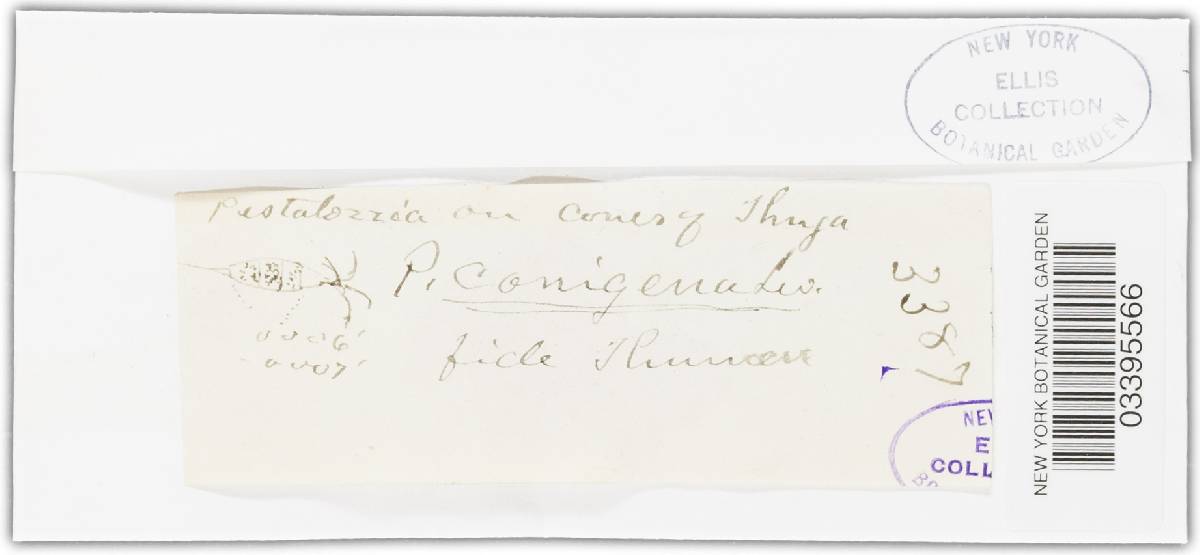 NEW YORK
ELLIS
COLLECTION
BOTANICAL GARDEN
Pestalozzia on cones of Thuja
P. Conigena Lev.
.0006'
.0007'
fide Thumen
3387
NEW
E
COLL
BO
NEW YORK BOTANICAL GARDEN
03395566